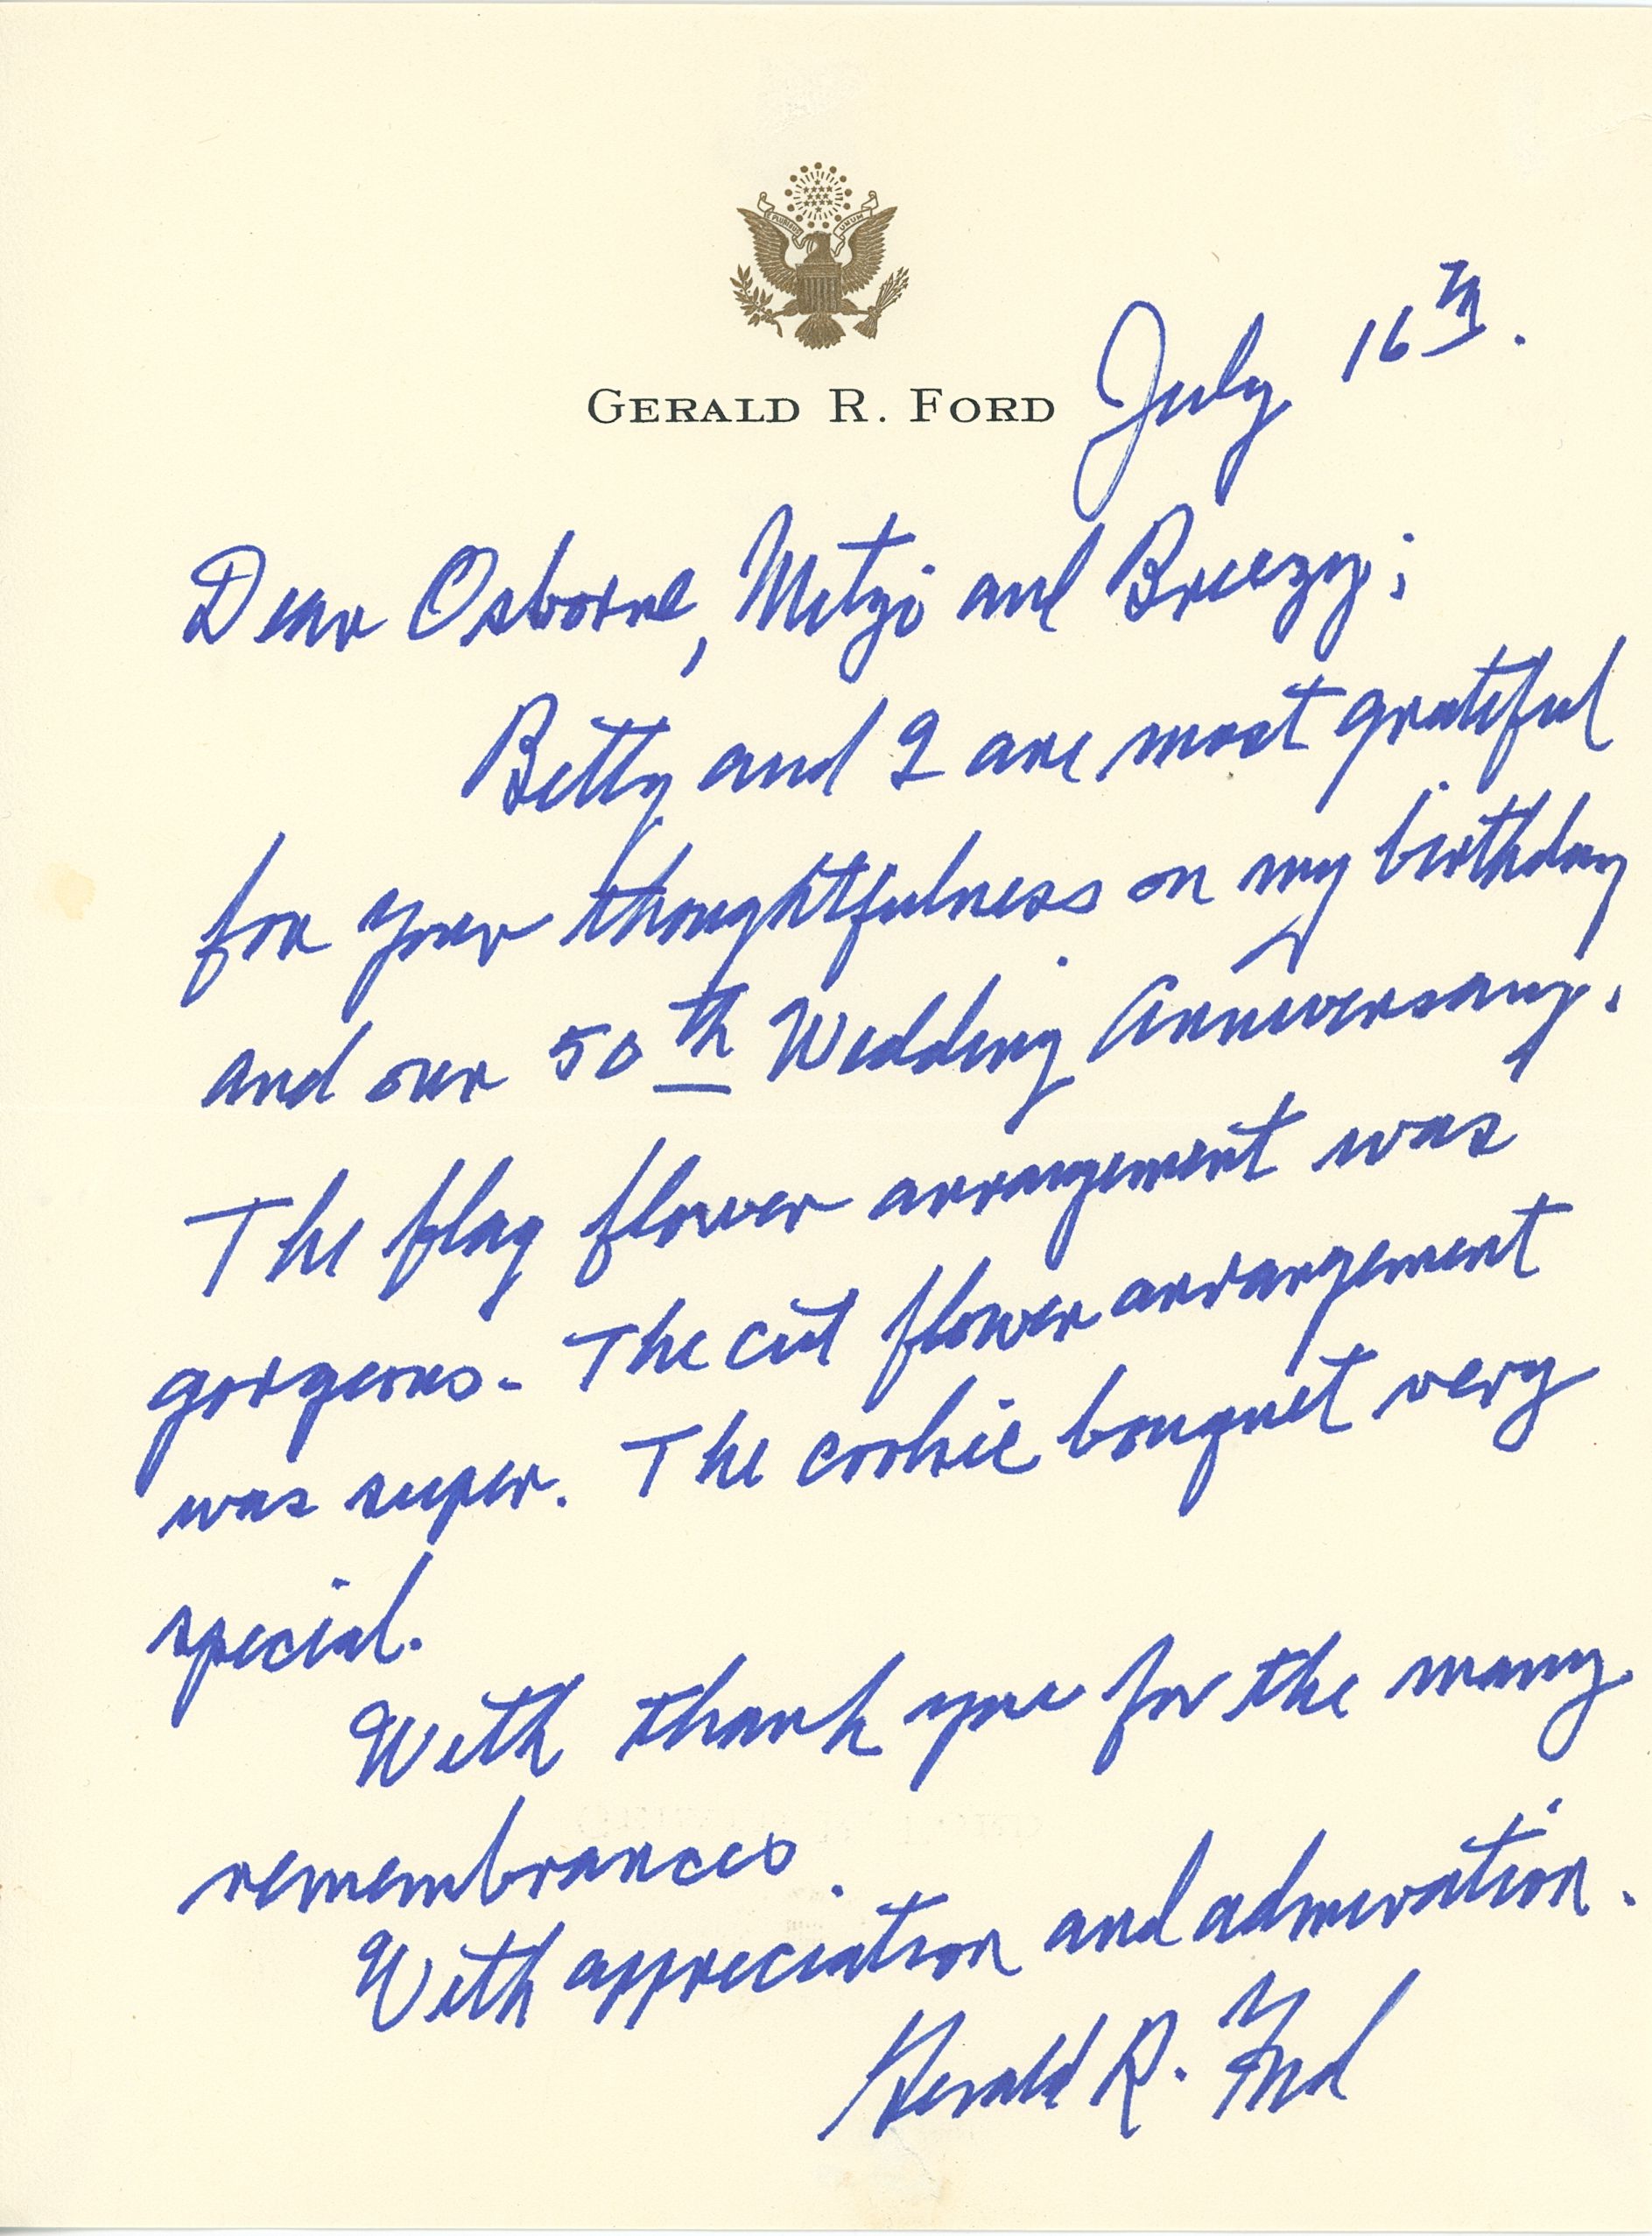 E PLURIBUS UNUM
GERALD R. FORD
July 16th.
Dear Osborne, Mitzi and Breezy;
Betty and I are most grateful
for your thoughtfulness on my birthday
and our 50th Wedding Anniversary.
The flag flower arrangement was
gorgeous. The cut flower arrangement
was super. The cookie bouquet very
special.
With thank you for the many
remembrances.
With appreciation and admiration.
Gerald R. Ford